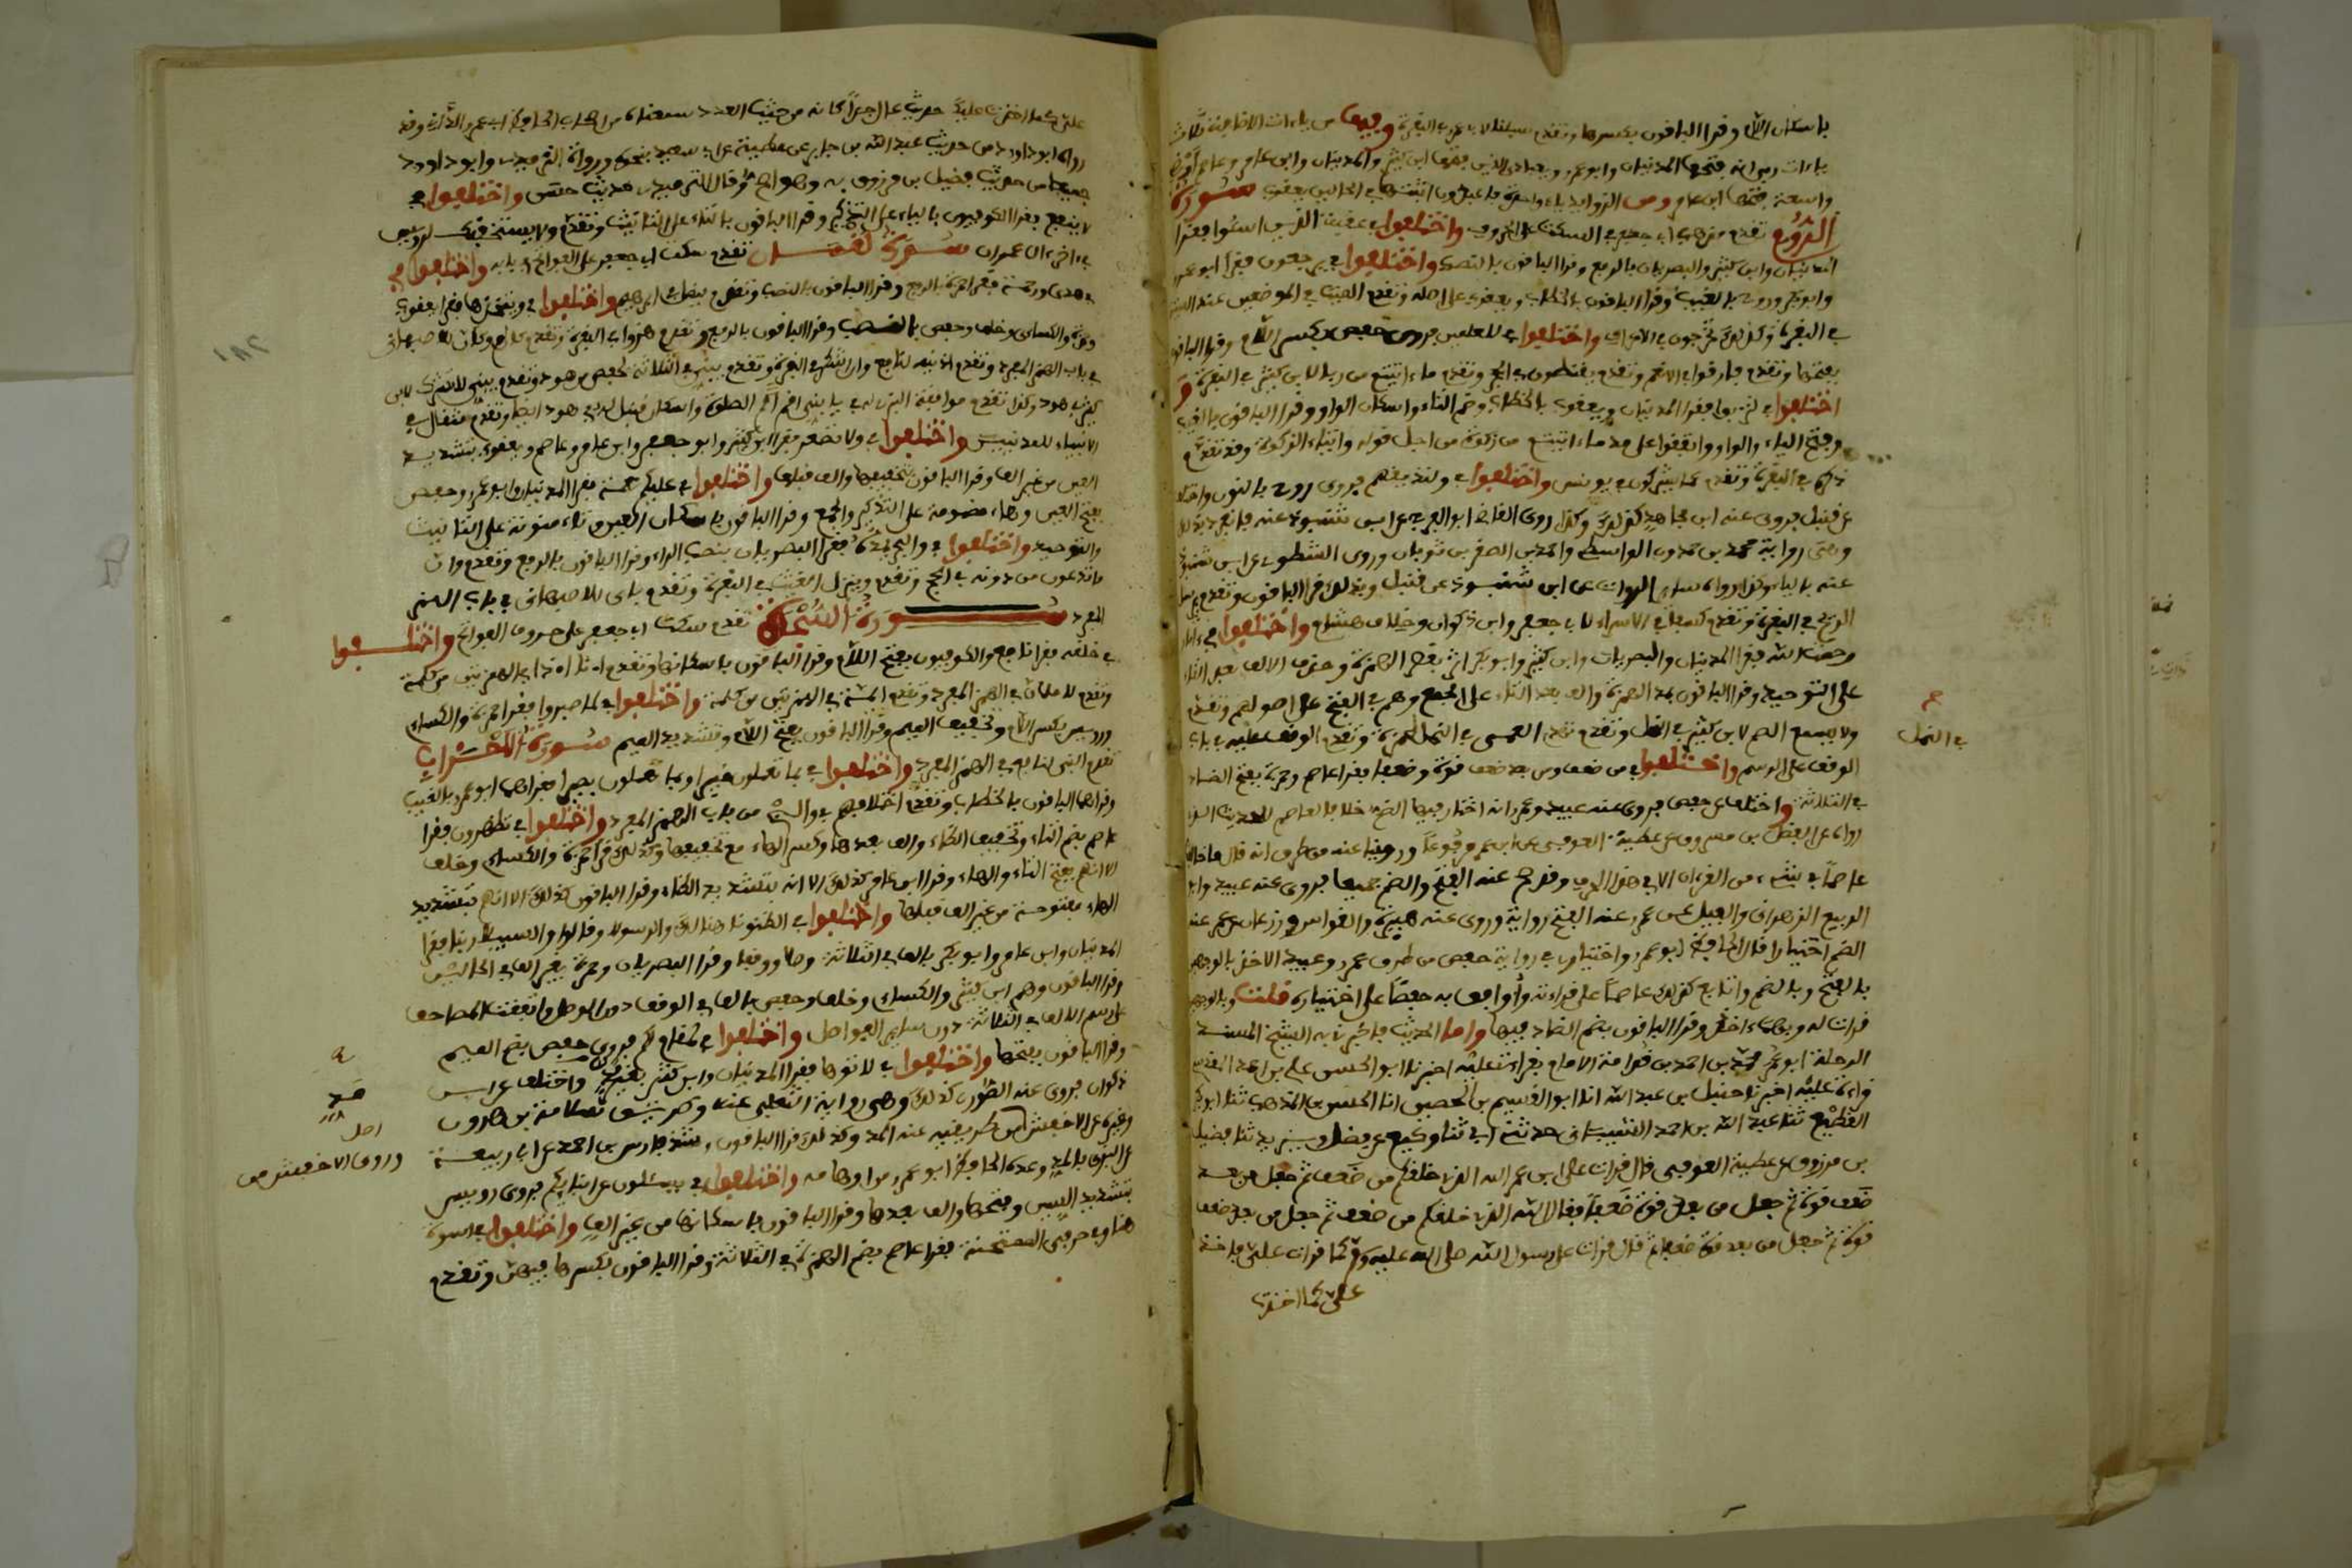 باسكان اللام وقرا الباقون بكسرها وتقدم سبلنا لابي عمرو في البقرة وفيها من ياءات الاضافة ثلاث
ياءات ربي انه فتحها المدنيان وابو عمرو يعبادي الذين فتحها ابن كثير والمدنيان وابن عامر وعاصم ارضي
واسعة فتحها ابن عامر ومن الزوايد ياء واحدة فاعبدون اثبتها في الحالين يعقوب سورة
الروم تقدم مذهب ابي جعفر في السكت على الحروف واختلفوا في عقبة الذين اسئوا فقرا
المدنيان وابن كثير والبصريان بالرفع وقرا الباقون بالنصب واختلفوا في يرجعون فقرا ابو عمرو
وابو بكر وروح بالغيب وقرا الباقون بالخطاب ويعقوب على اصله وتقدم الميت في الموضعين عند الميتة
في البقرة وكذلك تخرجون في الاعراف واختلفوا في للعلمين فروى حفص بكسر اللام وقرا الباقون
بفتحها وتقدم فارقوا في الانعام وتقدم يقنطون في الحجر وتقدم ماء اتيتم من ربا لابن كثير في البقرة و
اختلفوا في لتربوا فقرا المدنيان ويعقوب بالخطاب وضم التاء واسكان الواو وقرا الباقون بالغيب
وفتح الياء والواو واتفقوا على مد ماء اتيتم من زكوة من اجل قوله وايتاء الزكوة وقد تقدم
ذكره في البقرة وتقدم عما يشركون في يونس واختلفوا في ولنذيقهم فروى روح بالنون واختلف
عن قنبل فروى عنه ابن مجاهد كذلك وكذا روى القاضي ابو الفرج عن ابن شنبوذ عنه فانفرد بذلك
وهي رواية محمد بن حمدون الواسطي واحمد بن الصقر بن ثوبان وروى الشطوي عن ابن شنبوذ
عنه بالياء وكذا رواه سائر الرواة عن ابن شنبوذ عن قنبل وبذلك قرا الباقون وتقدم يرسل
الريح في البقرة وتقدم كسفا في الاسراء لابي جعفر وابن ذكوان وخلاف هشام واختلفوا في ءاثار
رحمت الله فقرا المدنيان والبصريان وابن كثير وابو بكر اثر بقصر الهمزة وحذف الالف بعد الثاء
على التوحيد وقرا الباقون بمد الهمزة والف بعد الثاء على الجمع وهم في الفتح على اصولهم وتقدم
ولا يسمع الصم لابن كثير في النمل وتقدم تهد العمى في النمل لحمزة وتقدم الوقف عليه في باب
الوقف على الرسم واختلفوا في من ضعف ومن بعد ضعف قوة وضعفا فقرا عاصم وحمزة بفتح الضاد
في الثلاثة واختلف عن حفص فروى عنه عبيد وعمرو انه اختار فيها الضم خلافا لعاصم للحديث الذي
رواه عن الفضل بن مرزوق عن عطية العوفي عن ابن عمر مرفوعا وروينا عنه من طرق انه قال ما خالفت
عاصما في شيء من القرءان الا في هذا الحرف وقد صح عنه الفتح والضم جميعا فروى عنه عبيد وابو
الربيع الزهراني والفيل عن عمرو عنه الفتح رواية وروى عنه هبيرة والقواس وزرعان عن عمرو عنه
الضم اختيارا قال الحافظ ابو عمرو واختياري في رواية حفص من طريق عمرو وعبيد الاخذ بالوجهين
بالفتح وبالضم واتابع كذلك عاصما على قراءته واوافق به حفصا على اختياره قلت وبالوجهين
قرات له وبهما ءاخذ وقرا الباقون بضم الضاد فيها واما الحديث فاخبرنا به الشيخ المسند
الرحلة ابو عمر محمد بن احمد بن قدامة الامام بقراءتي عليه اخبرنا ابو الحسن علي بن احمد المقدسي
قراءة عليه اخبرنا حنبل بن عبد الله انا ابو القسم بن الحصين انا الحسن بن المذهب ثنا ابو بكر
القطيعي ثنا عبد الله بن احمد الشيباني حدثني ابي ثنا وكيع عن فضيل ويزيد ثنا فضيل
بن مرزوق عن عطية العوفي قال قرات على ابن عمر الله الذي خلقكم من ضعف ثم جعل من بعد
ضعف قوة ثم جعل من بعد قوة ضعفا فقال الله الذي خلقكم من ضعف ثم جعل من بعد ضعف
قوة ثم جعل من بعد قوة ضعفا ثم قال قرات على رسول الله صلى الله عليه وسلم كما قرات علي فاخذ
علي كما اخذت
في النمل
علي كما اخذت عليك حديث عال جدا كانه من حيث العدد سمعناه من اصحاب الحافظ ابي عمرو الداني وقد
رواه ابو داود من حديث عبد الله بن جابر عن عطية عن ابي سعيد بنحوه ورواه الترمذي وابو داود
جميعا من حديث فضيل بن مرزوق به وهو اصح وقال الترمذي حديث حسن واختلفوا في
لا ينفع فقرا الكوفيون بالياء على التذكير وقرا الباقون بالتاء على التانيث وتقدم ولا يستخفنك لرويس
في ءاخر ءال عمران سورة لقمان تقدم سكت ابي جعفر على الفواتح في بابه واختلفوا في
هدى ورحمة فقرا حمزة بالرفع وقرا الباقون بالنصب وتقدم ليضل في ابرهيم واختلفوا في ويتخذها فقرا يعقوب
وحمزة والكسائي وخلف وحفص بالنصب وقرا الباقون بالرفع وتقدم هزوا في البقرة وتقدم كان لم وكان للاصبهاني
في باب الهمز المفرد وتقدم اذنيه لنافع وان اشكر في البقرة وتقدم يبني في الثلاثة لحفص في هود وتقدم يبني لا تشرك لابن
كثير في هود وكذا تقدم موافقة البزي له في يا بني اقم الصلوة واسكان قنبل له في هود ايضا وتقدم مثقال في
الانبياء للمدنيين واختلفوا في ولا تصعر فقرا ابن كثير وابو جعفر وابن عامر وعاصم ويعقوب بتشديد
العين من غير الف وقرا الباقون بتخفيفها والف قبلها واختلفوا في عليكم نعمه فقرا المدنيان وابو عمرو وحفص
بفتح العين وهاء مضمومة على التذكير والجمع وقرا الباقون باسكان العين وتاء منونة على التانيث
والتوحيد واختلفوا في والبحر يمده فقرا البصريان بنصب الراء وقرا الباقون بالرفع وتقدم وان
ما تدعون من دونه في الحج وتقدم وينزل الغيث في البقرة وتقدم باى للاصبهاني في باب الهمز
المفرد سورة السجدة تقدم سكت ابي جعفر على حروف الفواتح واختلفوا
في خلقه فقرا نافع والكوفيون بفتح اللام وقرا الباقون باسكانها وتقدم اءذا اءنا في الهمزتين من كلمة
وتقدم لاملان في الهمز المفرد وتقدم ائمة في الهمزتين من كلمة واختلفوا في لما صبروا فقرا حمزة والكسائي
ورويس بكسر اللام وتخفيف الميم وقرا الباقون بفتح اللام وتشديد الميم سورة الاحزاب
تقدم النبي لنافع في الهمز المفرد واختلفوا في بما تعملون خبيرا وبما تعملون بصيرا فقراهما ابو عمرو بالغيب
وقراهما الباقون بالخطاب وتقدم اختلافهم في والئ من باب الهمز المفرد واختلفوا في تظهرون فقرا
عاصم بضم التاء وتخفيف الظاء والف بعدها وكسر الهاء مع تخفيفها وكذلك قرا حمزة والكسائي وخلف
الا انهم بفتح التاء والهاء وقرا ابن عامر كذلك الا انه بتشديد الظاء وقرا الباقون كذلك الا انهم بتشديد
الهاء مفتوحة من غير الف قبلها واختلفوا في الظنونا هنالك والرسولا وقالوا والسبيلا ربنا فقرا
المدنيان وابن عامر وابو بكر بالف في الثلاثة وصلا ووقفا وقرا البصريان وحمزة بغير الف في الحالين
وقرا الباقون وهم ابن كثير والكسائي وخلف وحفص بالف في الوقف دون الوصل واتفقت المصاحف
على رسم الالف في الثلاثة دون ساير الفواصل واختلفوا في لا مقام لكم فروى حفص بضم الميم
وقرا الباقون بفتحها واختلفوا في لاتوها فقرا المدنيان وابن كثير بغير مد واختلف عن ابن
ذكوان فروى عنه الصوري كذلك وهي رواية التغلبي عنه وطريق سلامة بن هارون
وغيره عن الاخفش من طريقيه عنه المد وكذلك قرا الباقون وشذ فارس بن احمد عن ابي ربيعة
عن البزي بالمد وعده الحافظ ابو عمرو من اوهامه واختلفوا في يسئلون عن انبائكم فروى رويس
بتشديد السين وفتحها والف بعدها وقرا الباقون باسكانها من غير الف واختلفوا في اسوة
هنا وفي حرفي الممتحنة فقرا عاصم بضم الهمزة في الثلاثة وقرا الباقون بكسرها فيهن وتقدم
اصل
وروى الاخفش من